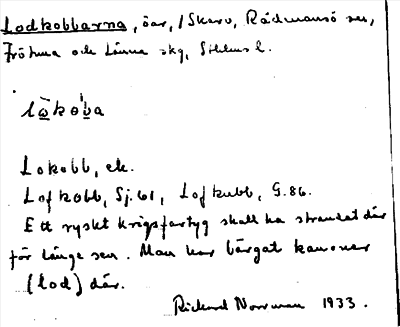 Lodkobbarna, öar, i Skarv, Rådmansö sn,
Frötuna och Länna skg, Sthlms l.
lòkob̀a
Lokobb, ek.
Lofkobb, Sj. 61, Lofkubb, G. 86.
Ett ryskt krigsfartyg skall ha strandat där
för länge sen. Man har bärgat kanoner
(lod) där.
Rickard Norrman 1933.